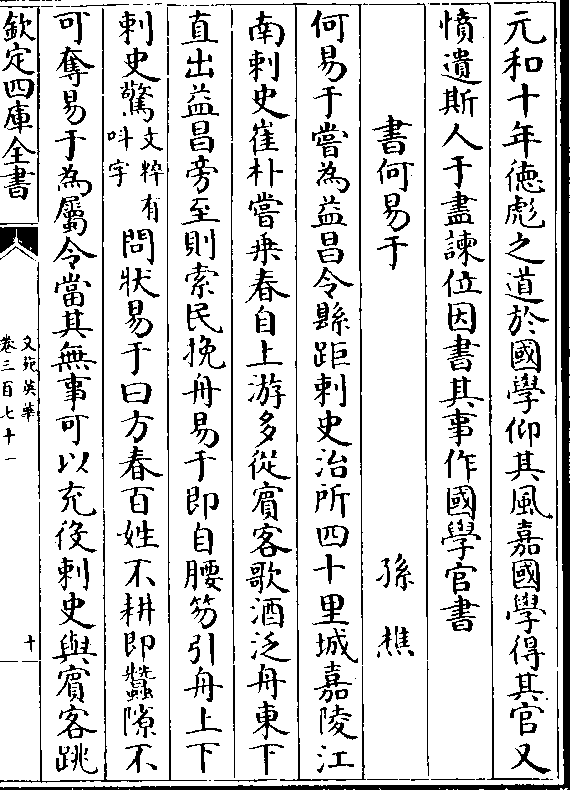 元和十年德彪之道於國學仰其風嘉國學得其官又
憤遺斯人于盡諫位因書其事作國學官書
書何易于　孫樵
何易于嘗為益昌令縣距刺史治所四十里城嘉陵江
南刺史崔朴嘗乗春自上游多從賓客歌酒泛舟東下
直出益昌旁至則索民挽舟易于即自腰笏引舟上下
刺史驚文粹有呌字問狀易于曰方春百姓不耕即蠶隙不
可奪易于為屬令當其無事可以充役刺史與賓客跳
欽定四庫全書
文苑英華
卷三百七十一
十